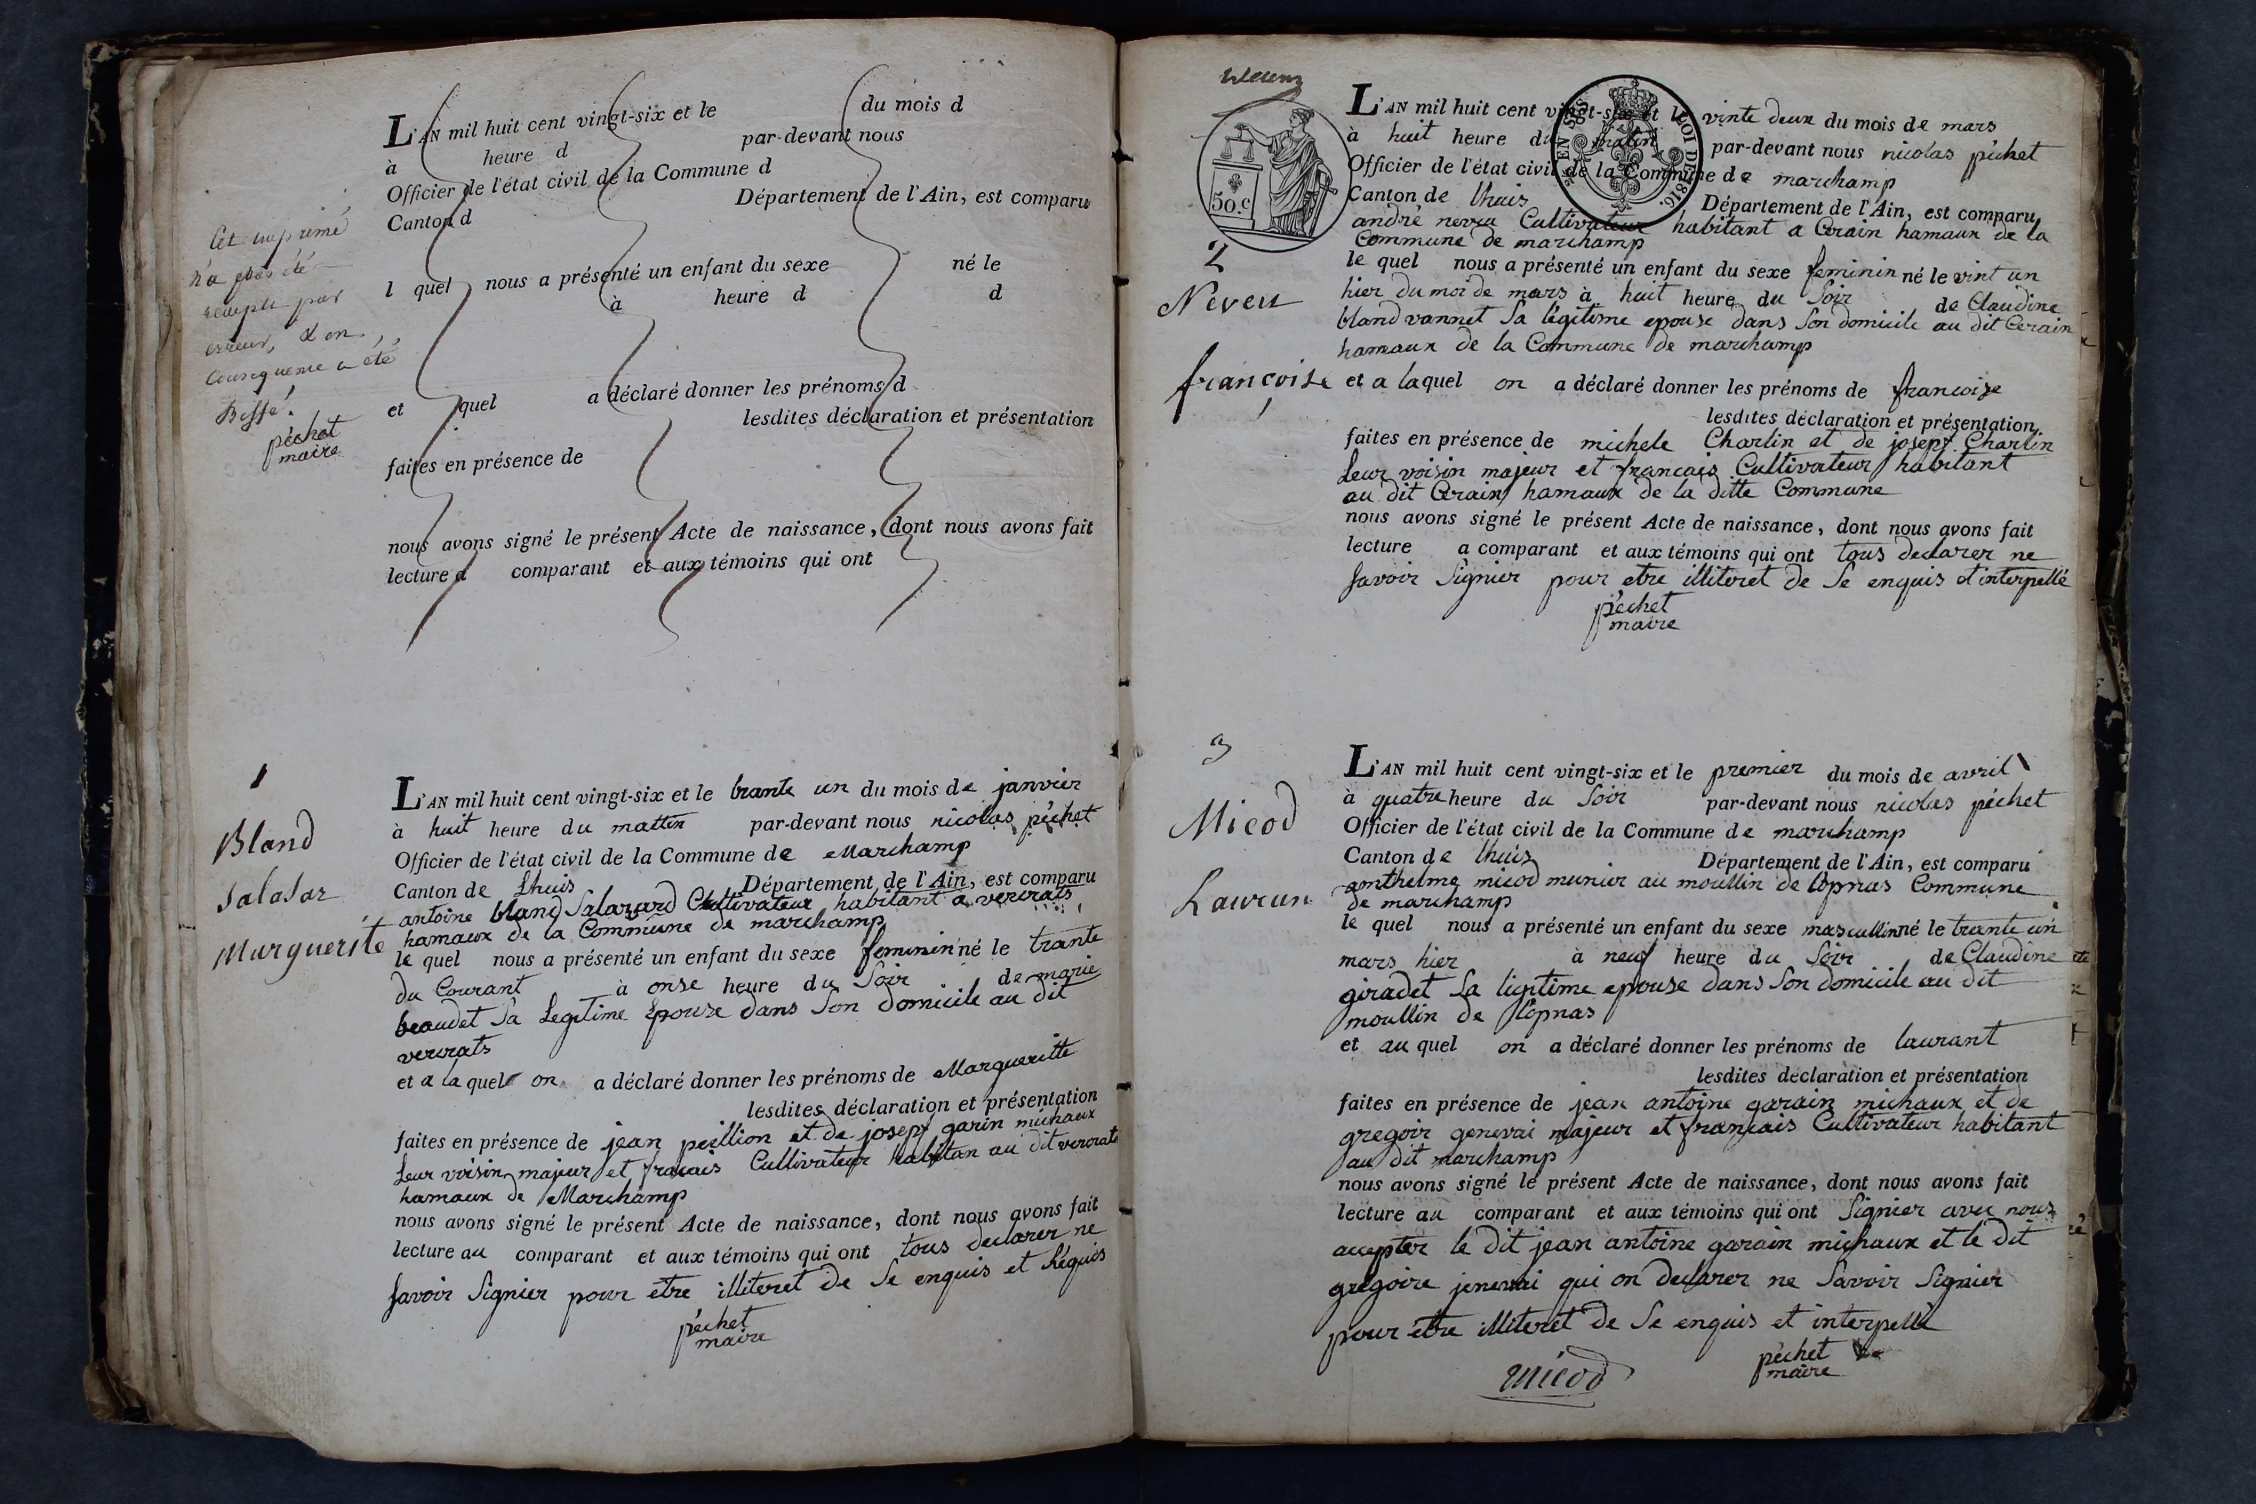 L'AN mil huit cent vingt-six et le du mois d
à heure d par-devant nous
Officier de l'état civil de la Commune d
Canton d Département de l'Ain, est comparu
l quel nous a présenté un enfant du sexe né le
à heure d d
et quel a déclaré donner les prénoms d
lesdites déclaration et présentation
faites en présence de
nous avons signé le présent Acte de naissance, dont nous avons fait
lecture a comparant et aux témoins qui ont
Cet imprimé
n'a pas été
remplie par
erreur, & en
Consequence a été
Biffé!
péchet
maire
1
Bland
Salasar
Marguerite
L'AN mil huit cent vingt-six et le trante un du mois de janvier
à huit heure du mattin par-devant nous nicolas péchet
Officier de l'état civil de la Commune de Marchamp
Canton de Lhuis Département de l'Ain, est comparu
antoine bland Salazard Cultivateur habitant a vercrats
hamaux de la Commune de marchamp
le quel nous a présenté un enfant du sexe feminin né le trante
du Courant à onse heure du Soir de marie
beaudet Sa Legitime Epouze dans Son domicile au dit
vercrats
et a la quel on a déclaré donner les prénoms de Margueritte
lesdites déclaration et présentation
faites en présence de jean peillion et de josepf garin michaux
Leur voisin majeur et fracais Cultivateur habitan au dit vercrats
hamaux de Marchamp
nous avons signé le présent Acte de naissance, dont nous avons fait
lecture au comparant et aux témoins qui ont tous declarer ne
Savoir Signier pour etre illiteret de Se enquis et Réquis
péchet
maire
50.c
EN SUS
LOI DE 1816.
2
Neveu
françoise
L'AN mil huit cent vingt-six et le vinte deux du mois de mars
à huit heure du matin par-devant nous nicolas péchet
Officier de l'état civil de la Commune de marchamp
Canton de lhuis Département de l'Ain, est comparu
andré neveu Cultivateur habitant a Cerain hamaux de la
Commune de marchamp
le quel nous a présenté un enfant du sexe feminin né le vint un
hier du moi de mars à huit heure du Soir de Claudine
bland vannet Sa légitime epouse dans Son domicile au dit Cerain
hameaux de la Commune de marchamp
et a laquel on a déclaré donner les prénoms de francoize
lesdites déclaration et présentation
faites en présence de michele Charlin et de josepf Charlin
Leur voisin majeur et francais Cultivateur habitant
au dit Cerain hamaux de la ditte Commune
nous avons signé le présent Acte de naissance, dont nous avons fait
lecture a comparant et aux témoins qui ont tous declarer ne
Savoir Signier pour etre illiteret de Se enquis et interpellé
péchet
maire
3
Micod
Laurun
L'AN mil huit cent vingt-six et le premier du mois de avril
à quatre heure du Soir par-devant nous nicolas péchet
Officier de l'état civil de la Commune de marchamp
Canton de lhuis Département de l'Ain, est comparu
anthelme micod munier au moullin de lopnas Commune
de marchamp
le quel nous a présenté un enfant du sexe mascullin né le trante un
mars hier à neuf heure du Soir de Claudine
giradet Sa ligitime epouse dans Son domicile au dit
moullin de lopnas
et au quel on a déclaré donner les prénoms de laurant
lesdites déclaration et présentation
faites en présence de jean antoine garain michaux et de
gregoir genevai majeur et français Cultivateur habitant
au dit marchamp
nous avons signé le présent Acte de naissance, dont nous avons fait
lecture au comparant et aux témoins qui ont Signier avec nous
accepter le dit jean antoine garain michaux et le dit
gregoire jenevai qui on declarer ne Savoir Signier
pour être illiteret de Se enquis et interpellé
micod
péchet
maire